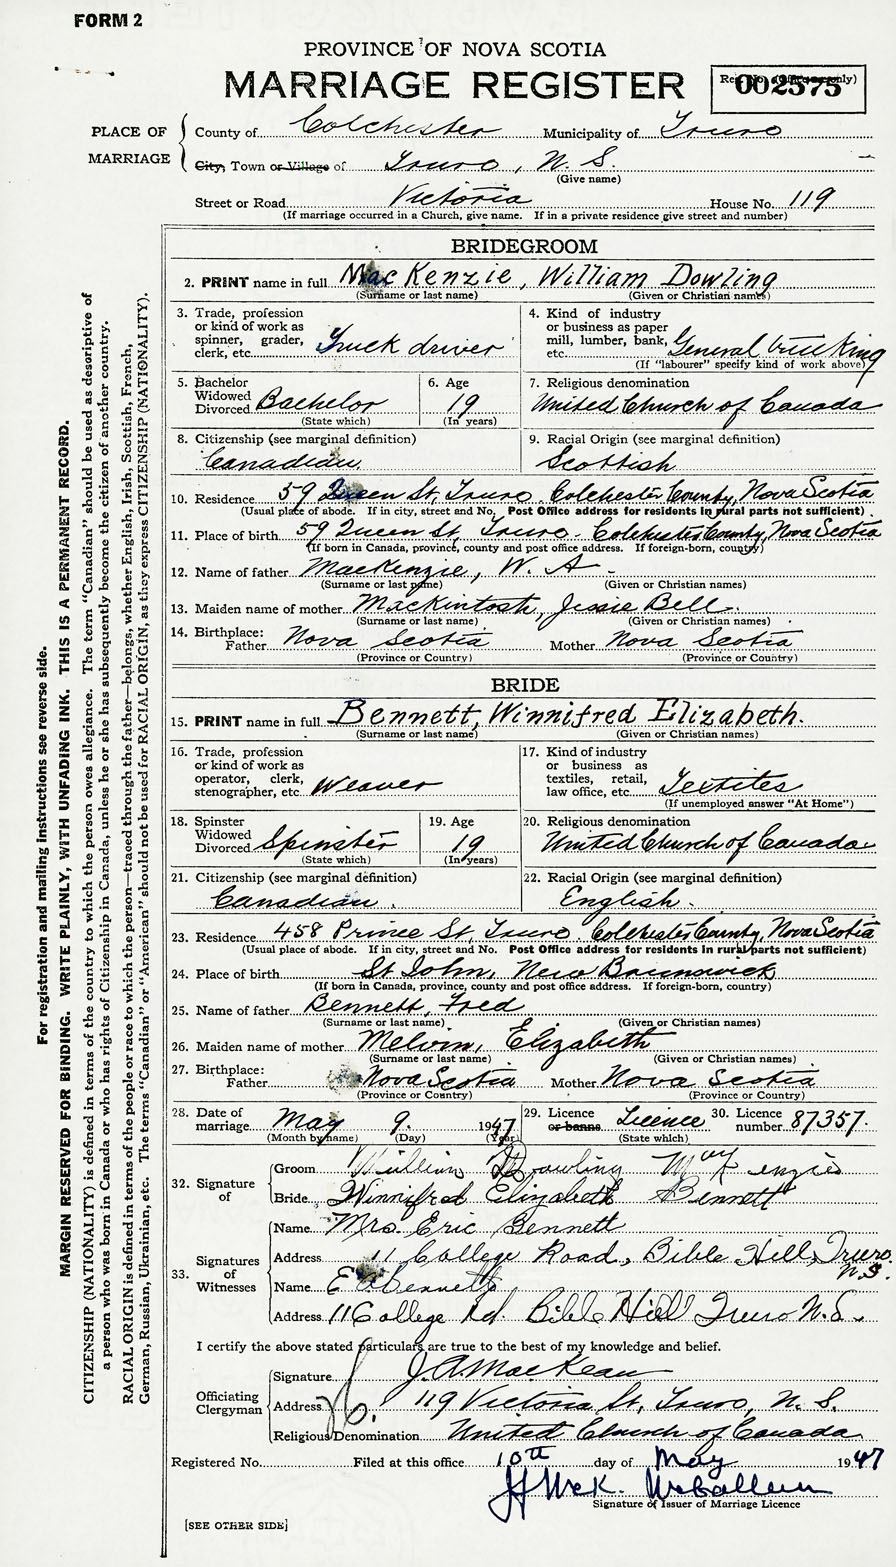 FORM 2
PROVINCE OF NOVA SCOTIA
MARRIAGE REGISTER
Reg. No. (Office use only)
002575
PLACE OF MARRIAGE
County of Colchester Municipality of Truro
City, Town or Village of Truro, N. S.
(Give name)
Street or Road Victoria House No. 119
(If marriage occurred in a Church, give name. If in a private residence give street and number)
BRIDEGROOM
2. PRINT name in full MacKenzie, William Dowling
(Surname or last name) (Given or Christian names)
3. Trade, profession or kind of work as spinner, grader, clerk, etc. Truck driver
4. Kind of industry or business as paper mill, lumber, bank, etc. General trucking
(If "labourer" specify kind of work above)
5. Bachelor Widowed Divorced Bachelor
(State which)
6. Age 19
(In years)
7. Religious denomination
United Church of Canada
8. Citizenship (see marginal definition)
Canadian
9. Racial Origin (see marginal definition)
Scottish
10. Residence 59 Queen St, Truro Colchester County, Nova Scotia
(Usual place of abode. If in city, street and No. Post Office address for residents in rural parts not sufficient)
11. Place of birth 59 Queen St, Truro - Colchester County, Nova Scotia
(If born in Canada, province, county and post office address. If foreign-born, country)
12. Name of father MacKenzie, W. A.
(Surname or last name) (Given or Christian names)
13. Maiden name of mother MacKintosh, Jessie Bell.
(Surname or last name) (Given or Christian names)
14. Birthplace: Father Nova Scotia Mother Nova Scotia
(Province or Country) (Province or Country)
BRIDE
15. PRINT name in full Bennett, Winnifred Elizabeth.
(Surname or last name) (Given or Christian names)
16. Trade, profession or kind of work as operator, clerk, stenographer, etc. Weaver
17. Kind of industry or business as textiles, retail, law office, etc. Textites
(If unemployed answer "At Home")
18. Spinster Widowed Divorced Spinster
(State which)
19. Age 19
(In years)
20. Religious denomination
United Church of Canada
21. Citizenship (see marginal definition)
Canadian.
22. Racial Origin (see marginal definition)
English.
23. Residence 458 Prince St, Truro. Colchester County, Nova Scotia
(Usual place of abode. If in city, street and No. Post Office address for residents in rural parts not sufficient)
24. Place of birth St John, New Brunswick
(If born in Canada, province, county and post office address. If foreign-born, country)
25. Name of father Bennett, Fred
(Surname or last name) (Given or Christian names)
26. Maiden name of mother Melvin, Elizabeth
(Surname or last name) (Given or Christian names)
27. Birthplace: Father Nova Scotia Mother Nova Scotia
(Province or Country) (Province or Country)
28. Date of marriage May 9. 1947
(Month by name) (Day) (Year)
29. Licence or banns Licence
(State which)
30. Licence number 87357.
32. Signature of
Groom William Dowling MacKenzie
Bride Winnifred Elizabeth Bennett
33. Signatures of Witnesses
Name Mrs. Eric Bennett
Address 11 College Road, Bible Hill, Truro. N.S.
Name Bennett
Address 11 College Rd Bible Hill Truro N.S.
I certify the above stated particulars are true to the best of my knowledge and belief.
Officiating Clergyman
Signature J. A. MacKean
Address 119 Victoria St, Truro, N. S.
Religious Denomination United Church of Canada
Registered No. Filed at this office 10th day of May 1947
Signature of Issuer of Marriage Licence
[SEE OTHER SIDE]
For registration and mailing instructions see reverse side.
MARGIN RESERVED FOR BINDING. WRITE PLAINLY, WITH UNFADING INK. THIS IS A PERMANENT RECORD.
CITIZENSHIP (NATIONALITY) is defined in terms of the country to which the person owes allegiance. The term "Canadian" should be used as descriptive of
a person who was born in Canada or who has rights of Citizenship in Canada, unless he or she has subsequently become the citizen of another country.
RACIAL ORIGIN is defined in terms of the people or race to which the person—traced through the father—belongs, whether English, Irish, Scottish, French,
German, Russian, Ukrainian, etc. The terms "Canadian" or "American" should not be used for RACIAL ORIGIN, as they express CITIZENSHIP (NATIONALITY).